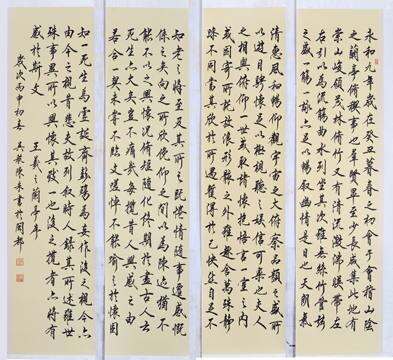 永和九年歲在癸丑暮春之初會于會稽山陰
之蘭亭脩禊事也羣賢畢至少長咸集此地有
崇山峻領茂林脩竹又有清流激湍暎帶左
右引以為流觴曲水列坐其次雖無絲竹管弦
之盛一觴一詠亦足以暢叙幽情是日也天朗氣
清惠風和暢仰觀宇宙之大俯察品類之盛所
以遊目騁懷足以極視聽之娛信可樂也夫人
之相與俯仰一世或取諸懷抱悟言一室之內
或因寄所託放浪形骸之外雖趣舍萬殊靜
躁不同當其欣於所遇暫得於己快然自足不
知老之將至及其所之既惓情隨事遷感慨
係之矣向之所欣俛仰之間以為陳迹猶不
能不以之興懷況脩短隨化終期於盡古人云
死生亦大矣豈不痛哉每攬昔人興感之由
若合一契未嘗不臨文嗟悼不能喻之於懷固
知一死生為虛誕齊彭殤為妄作後之視今亦
由今之視昔悲夫故列叙時人錄其所述雖世
殊事異所以興懷其致一也後之攬者亦將有
感於斯文 王羲之蘭亭序
歲次丙申初春